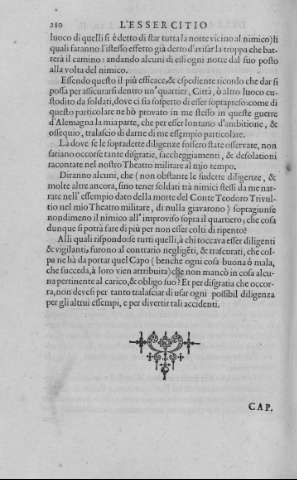 210 L'ESSERCITIO
luoco di quelli si è detto di star tutta la notte vicino al nimico) li
quali faranno l'istesso effetto già detto d'avisar la troppa che bat-
terà il camino: andando alcuni di essi ogni notte dal suo posto
alla volta del nimico.
Essendo questo il più efficace, & espediente ricordo che dar si
possa per assicurarsi dentro un'quartier, Città, ò altro luoco cu-
stodito da soldati, dove ci sia sospetto di esser sopra preso: come di
questo particolare ne hò provato in me stesso in queste guerre
d'Alemagna la mia parte, che per esser lontano d'ambitione, &
ossequio, tralascio di darne di me essempio particolare.
Là dove se le sopradette diligenze fossero state osservate, non
sariano occorse tante disgratie, saccheggiamenti, & desolationi
racontate nel nostro Theatro militare al mio tempo.
Diranno alcuni, che (non obstante le sudette diligenze, &
molte altre ancora, sino tener soldati trà nimici stessi da me nar-
rate nell'essempio dato della morte del Conte Teodoro Trivul-
tio nel mio Theatro militare, di nulla giavarono) sopragiunse
nondimeno il nimico all'improviso sopra il quartiero; che cosa
dunque si potrà fare di più per non esser colti di repente?
Alli quali rispondo se tutti quelli, à chi toccava esser diligenti
& vigilanti, furono al contrario negligeti, & trascurati, che col-
pa ne hà da portar quel Capo (benche ogni cosa buona ò mala,
che succeda, à loro vien attribuita) che non mancò in cosa alcu-
na pertinente al carico, & obligo suo? Et per disgratia che occor-
ra, non devesi per tanto tralasciar di usar ogni possibil diligenza
per gli altrui essempi, e per divertir tali accidenti.
CAP.